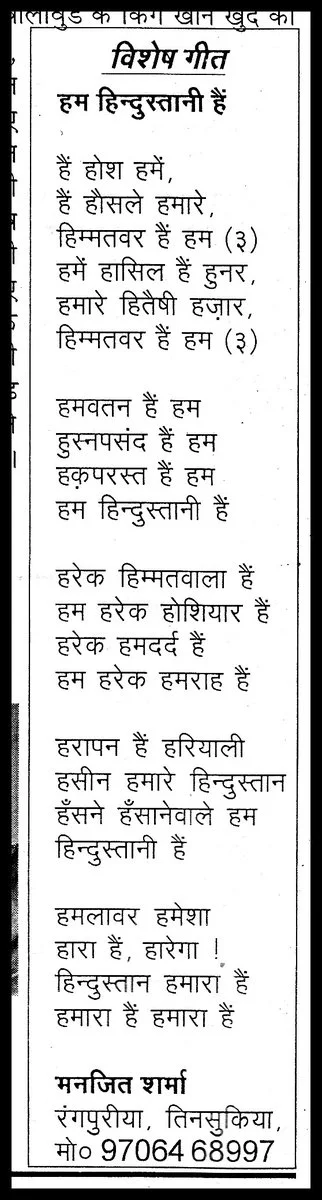 बालीवुड के किंग खान खुद को
विशेष गीत
हम हिन्दुस्तानी हैं
हैं होश हमें,
हैं हौसले हमारे,
हिम्मतवर हैं हम (३)
हमें हासिल हैं हुनर,
हमारे हितैषी हज़ार,
हिम्मतवर हैं हम (३)
हमवतन हैं हम
हुस्नपसंद हैं हम
हक़परस्त हैं हम
हम हिन्दुस्तानी हैं
हरेक हिम्मतवाला हैं
हम हरेक होशियार हैं
हरेक हमदर्द हैं
हम हरेक हमराह हैं
हरापन हैं हरियाली
हसीन हमारे हिन्दुस्तान
हँसने हँसानेवाले हम
हिन्दुस्तानी हैं
हमलावर हमेशा
हारा हैं, हारेगा !
हिन्दुस्तान हमारा हैं
हमारा हैं हमारा हैं
मनजित शर्मा
रंगपुरीया, तिनसुकिया,
मो० 97064 68997